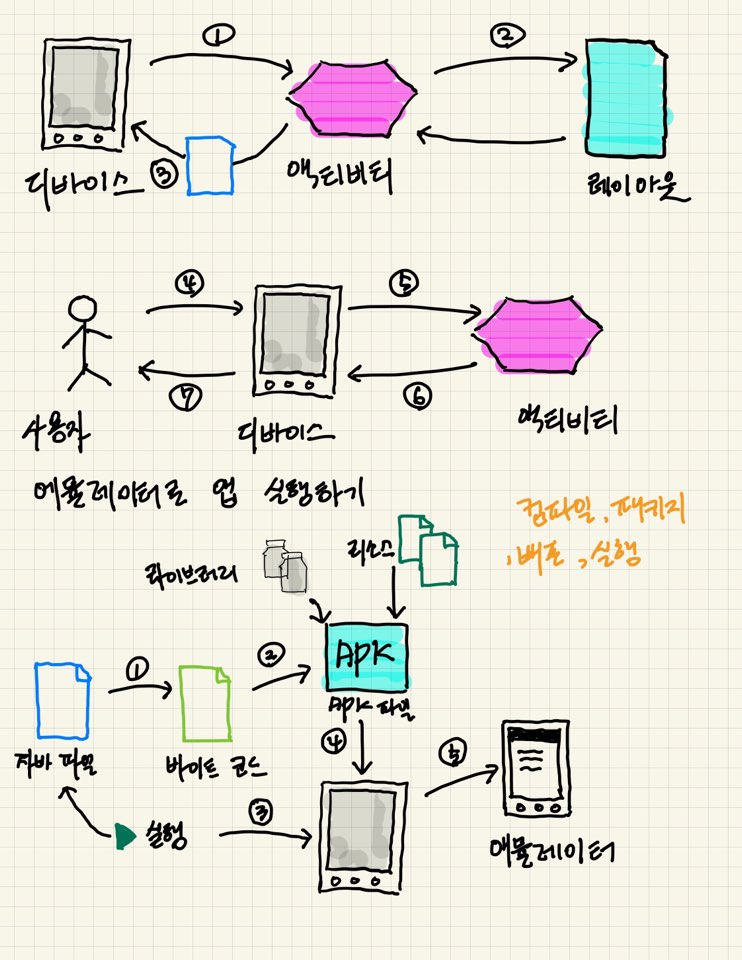 ① ②
③
디바이스 액티비티 레이아웃
④ ⑤
⑦ ⑥
사용자 디바이스 액티비티
에뮬레이터로 앱 실행하기
컴파일, 패키지
, 배포, 실행
라이브러리 리소스
APK
① ②
APK 파일
자바 파일 바이트 코드
④ ⑤
실행 ③
애뮬레이터